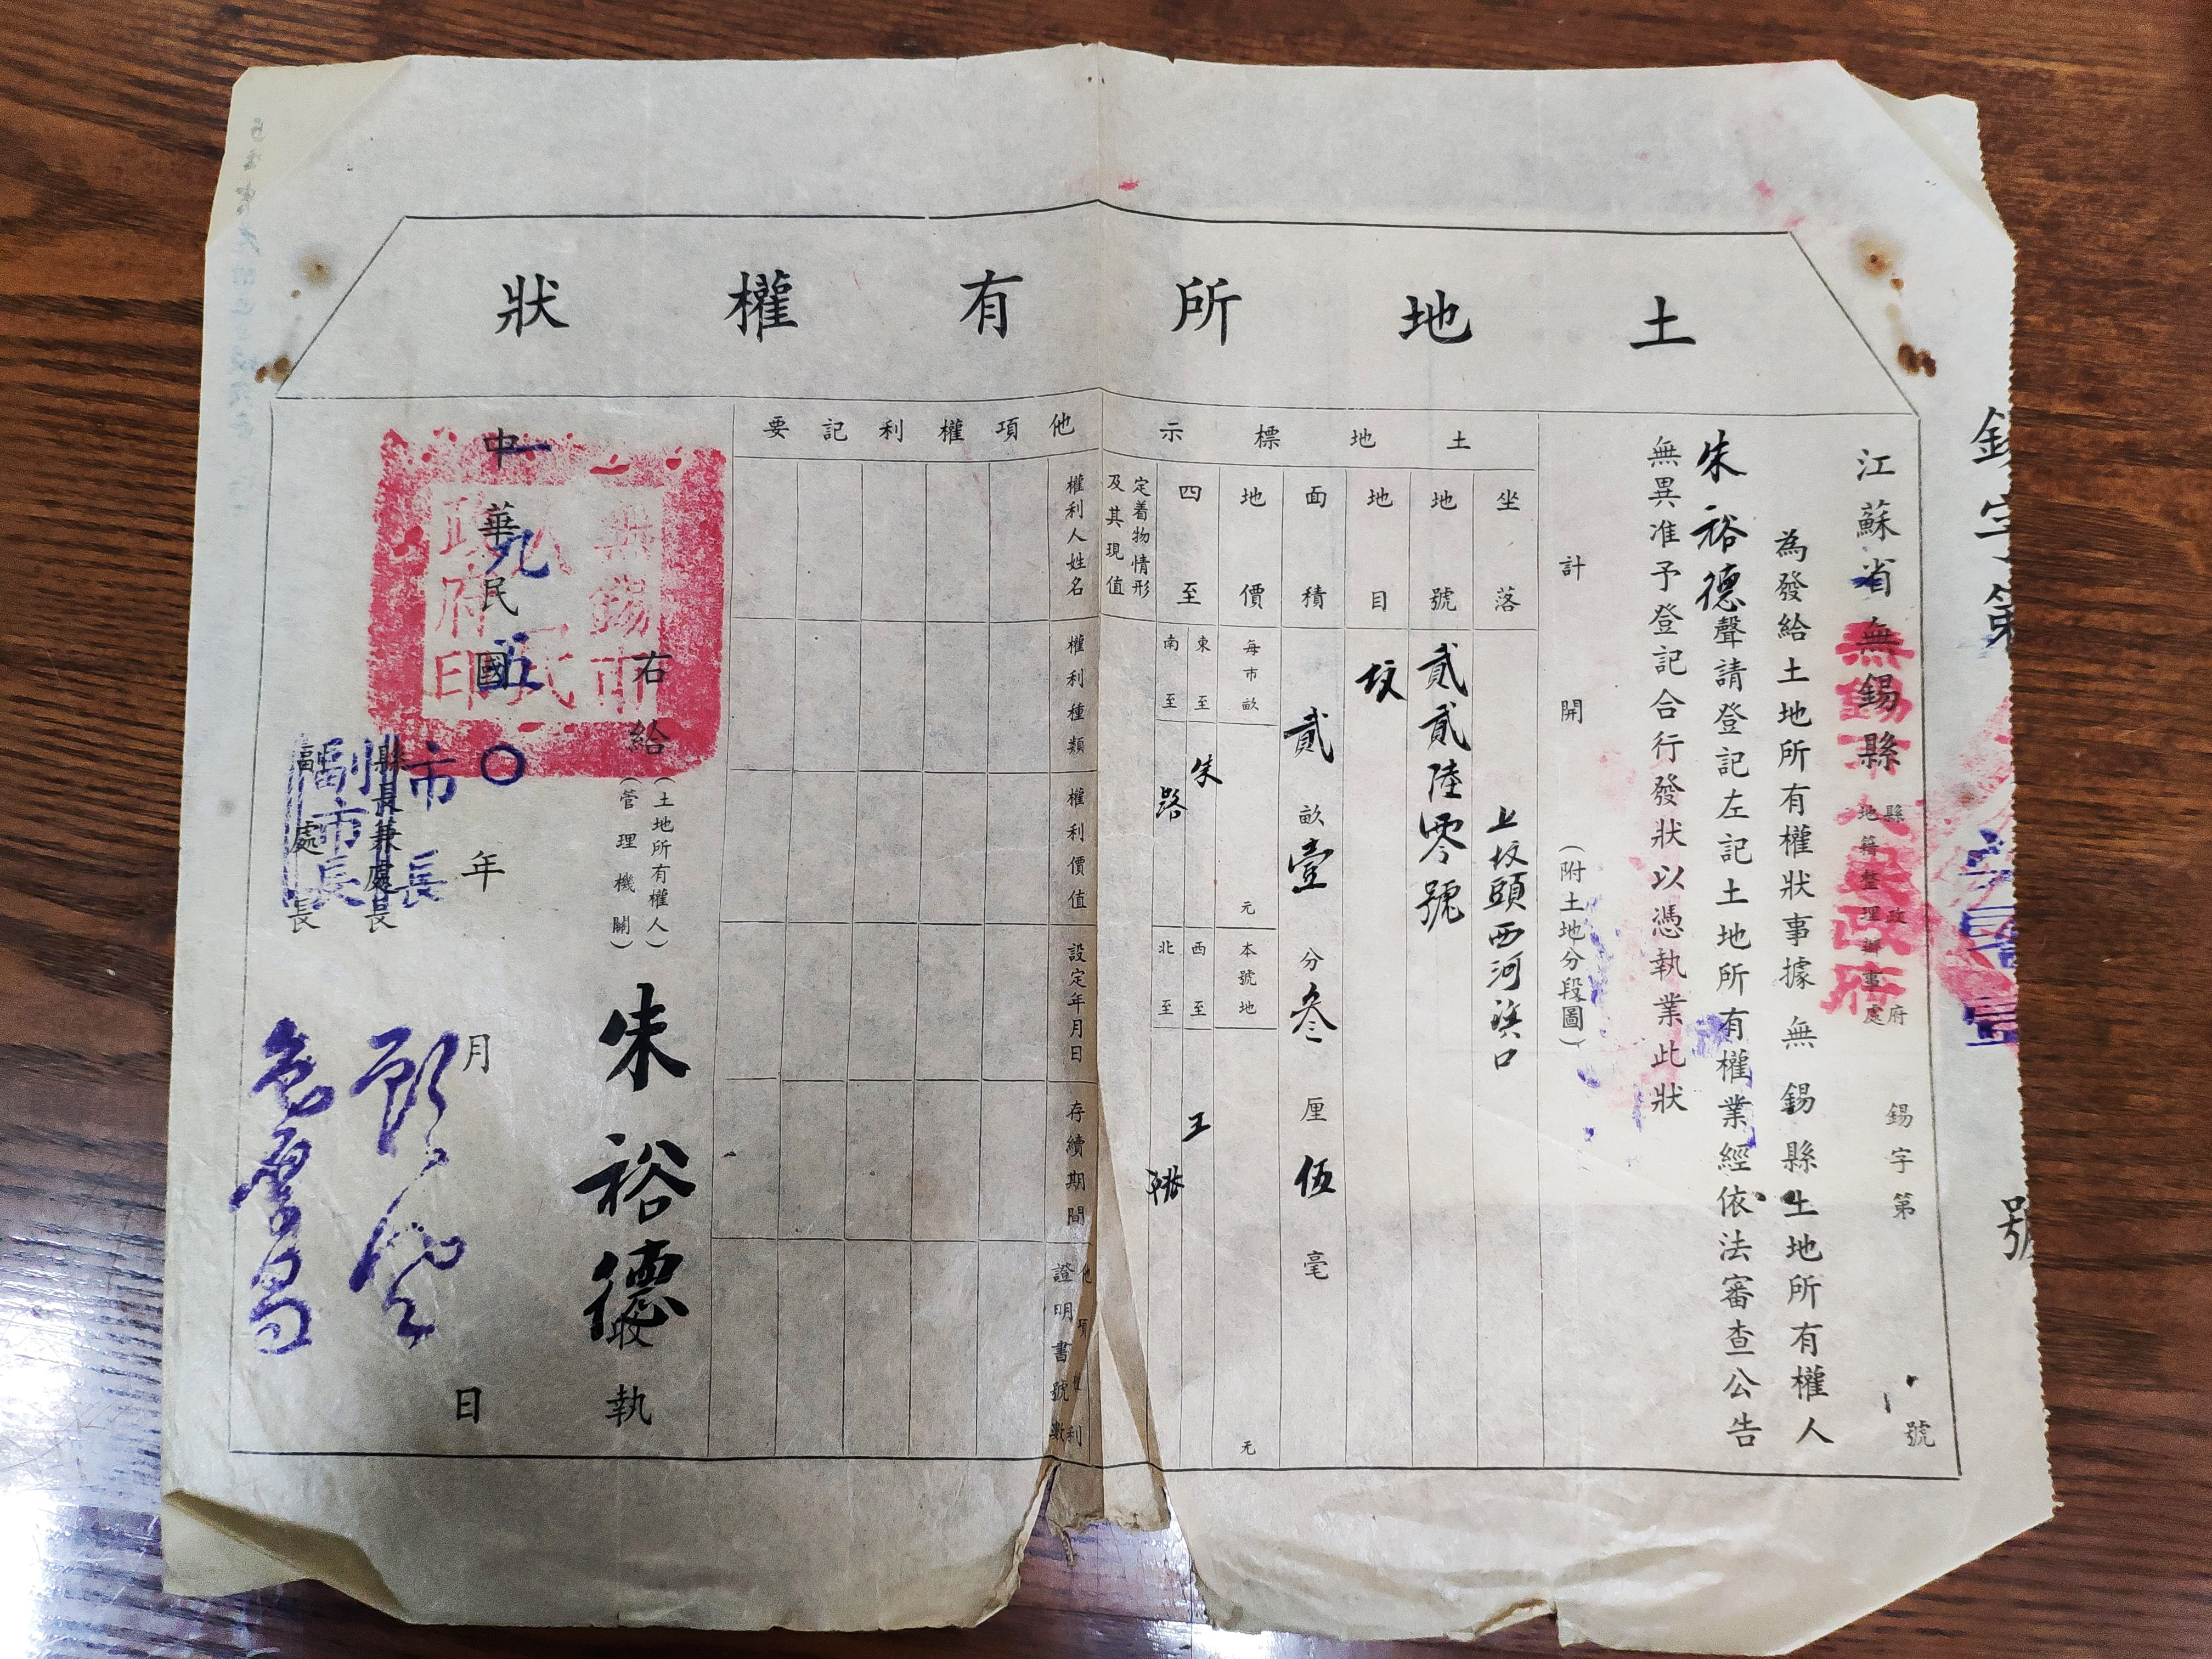 土地所有權狀
錫字第
號
江蘇省無錫縣
縣政府
地籍整理辦事處
錫字第
號
無錫市人民政府
為發給土地所有權狀事據 無錫縣土地所有權人
朱裕德聲請登記左記土地所有權業經依法審查公告
無異准予登記合行發狀以憑執業此狀
計開
(附土地分段圖)
土地標示
坐落
上坟頭西河浜口
地號
貳貳陸零號
地目
坟
面積
貳畝壹分叁厘伍毫
地價
每市畝
元
本號地
元
四至
東至
朱
西至
王
南至
路
北至
定着物情形
及其現值
他項權利記要
權利人姓名
權利種類
權利價值
設定年月日
存續期間
他項權利
證明書號數
右給
(土地所有權人)
(管理機關)
朱裕德
收執
中華民國
年
月
日
一九五〇
無錫市人民政府印
縣長兼處長
市長
副處長
副市長